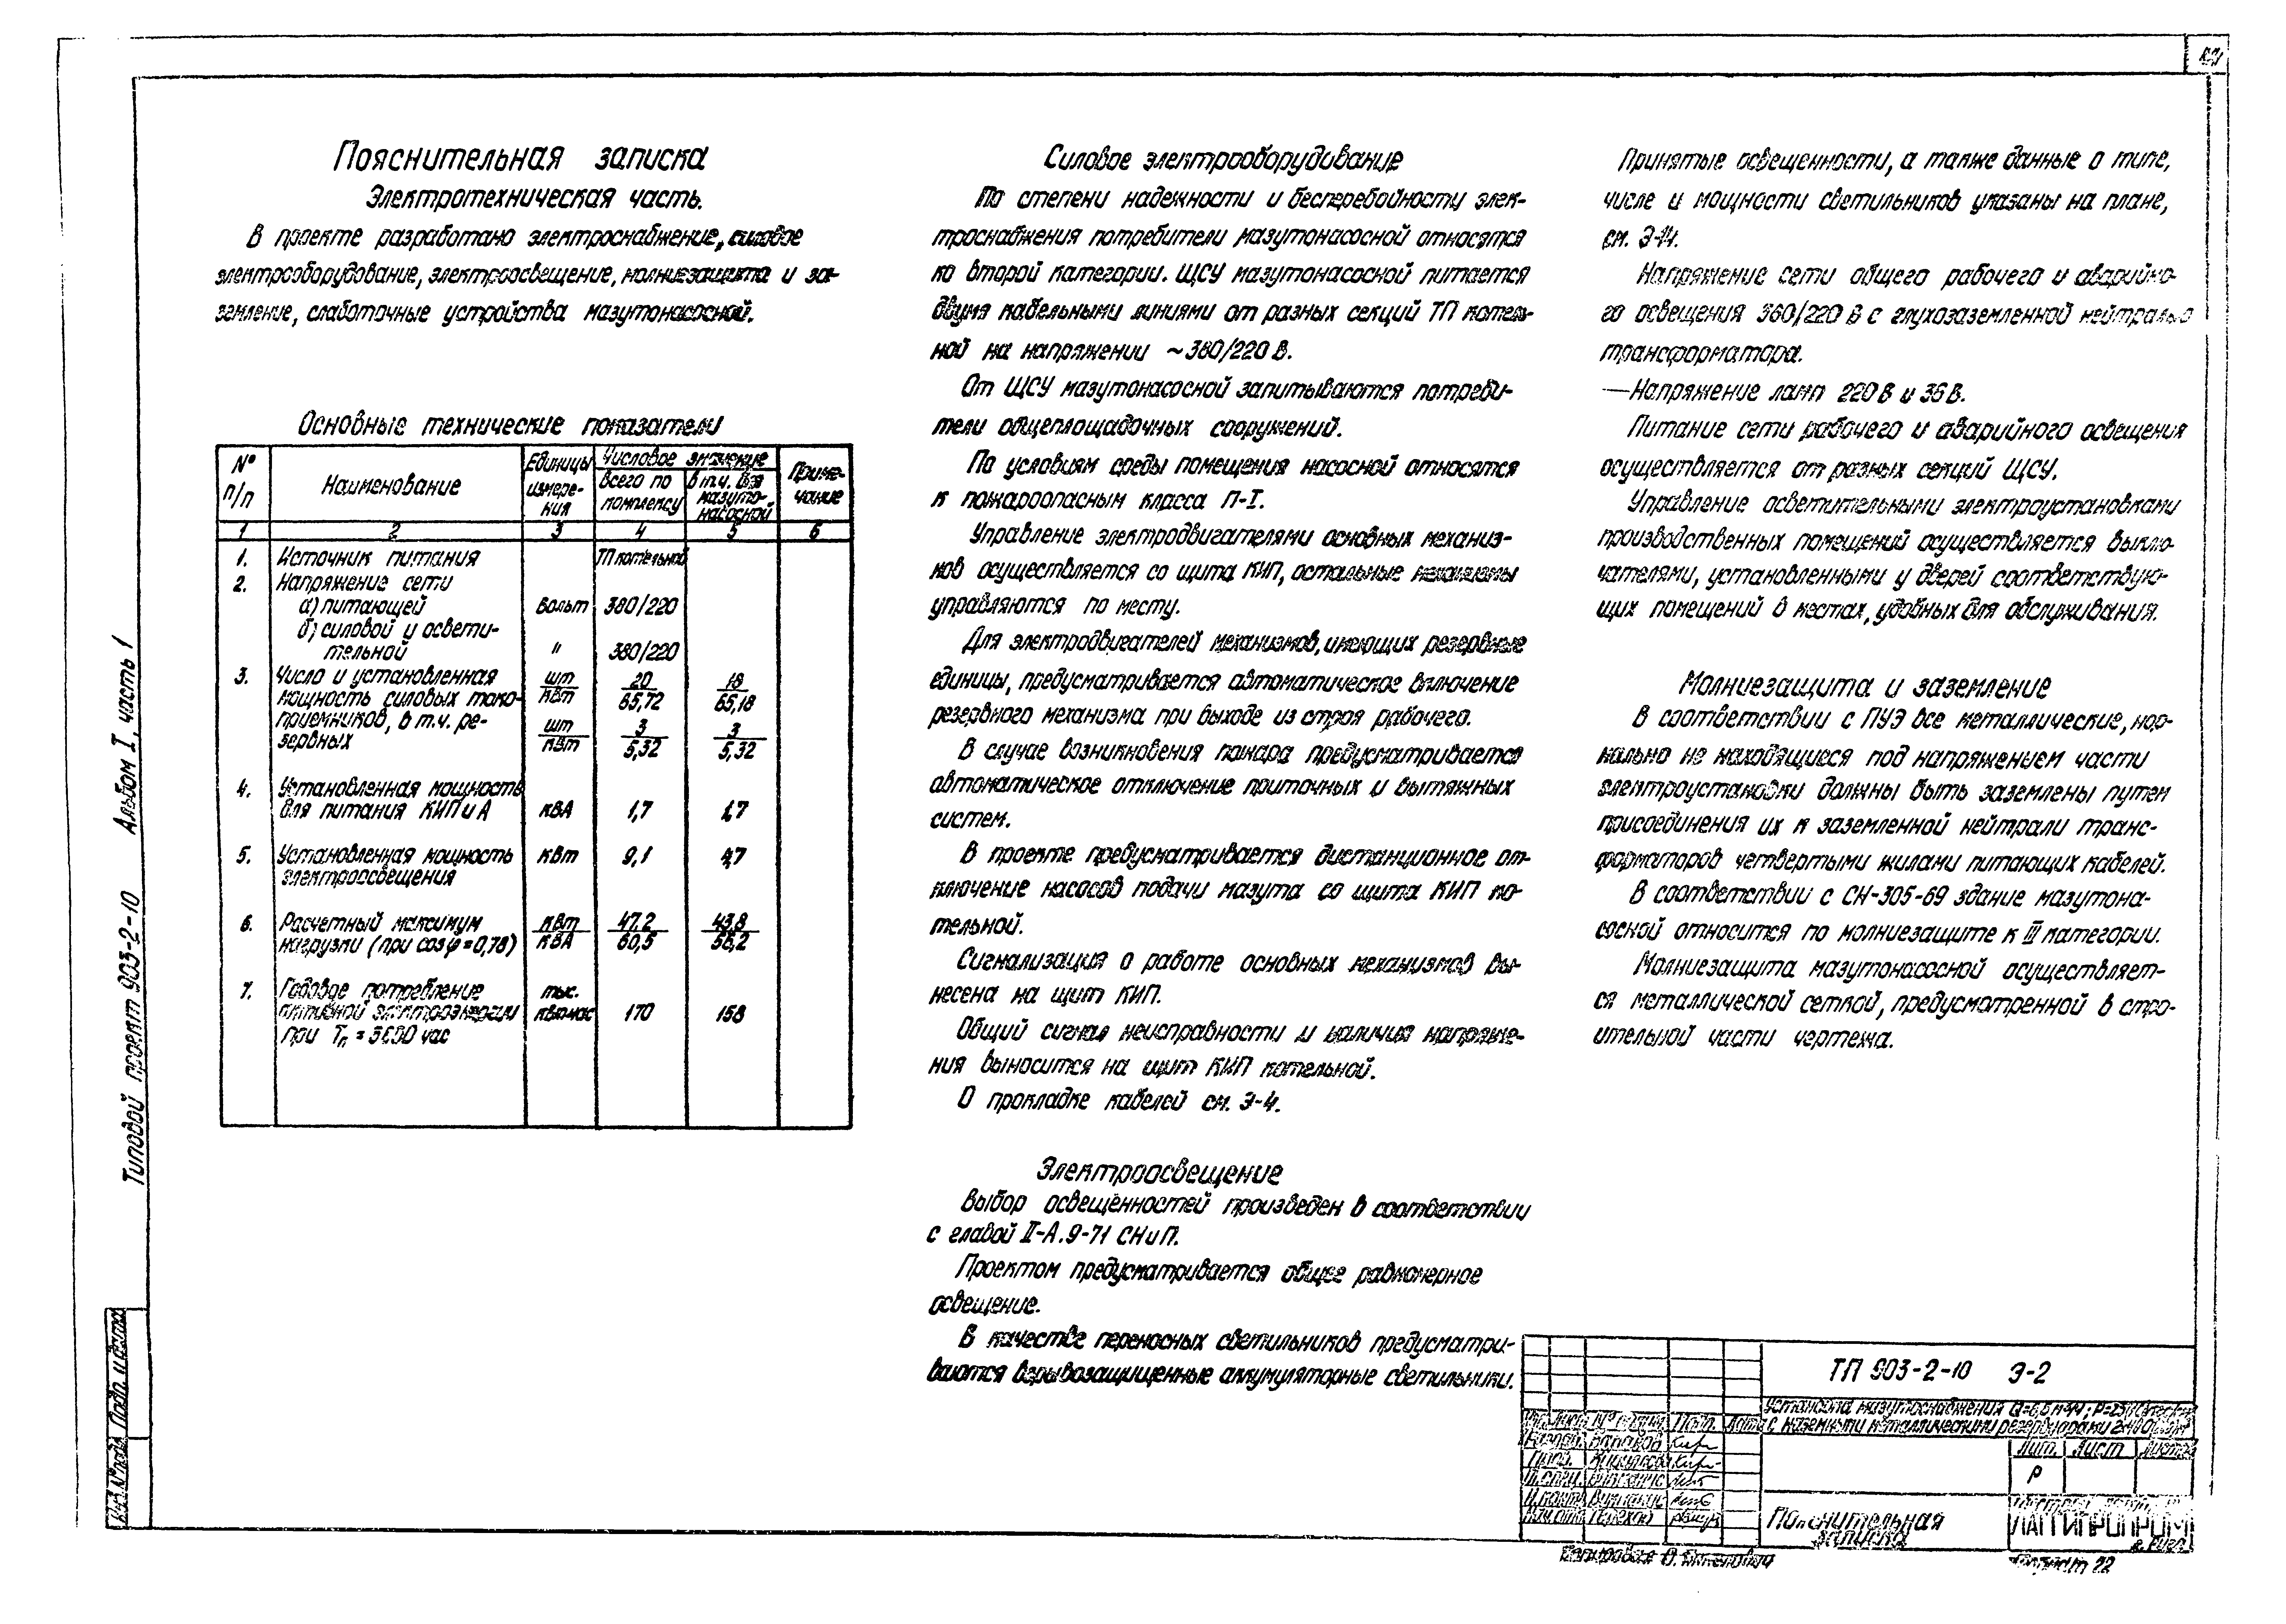 Пояснительная записка
Электротехническая часть.
В проекте разработано электроснабжение, силовое
электрооборудование, электроосвещение, молниезащита и за-
земление, слаботочные устройства мазутонасосной.
Основные технические показатели
№ п/п
Наименование
Единицы измере-ния
Числовое значение
Всего по комплексу
в т.ч. для мазуто-насосной
Приме-чание
1 2 3 4 5 6
1. Источник питания ТП котельной
2. Напряжение сети
а) питающей Вольт 380/220
б) силовой и освети-
тельной " 380/220
3. Число и установленная шт 20 18
мощность силовых токо- квт 65,72 65,18
приемников, в т.ч. ре- шт 3 3
зервных квт 5,32 5,32
4. Установленная мощность
для питания КИПиА кВА 1,7 1,7
5. Установленная мощность квт 9,1 4,7
электроосвещения
6. Расчетный максимум квт 47,2 43,8
нагрузки (при cosφ=0,78) кВА 60,5 56,2
7. Годовое потребление тыс.
активной электроэнергии квтчас 170 158
при Тп = час
Силовое электрооборудование
По степени надежности и бесперебойности элек-
троснабжения потребители мазутонасосной относятся
ко второй категории. ЩСУ мазутонасосной питается
двумя кабельными линиями от разных секций ТП котель-
ной на напряжении ~380/220 В.
От ЩСУ мазутонасосной запитываются потреби-
тели общеплощадочных сооружений.
По условиям среды помещения насосной относятся
к пожароопасным класса П-I.
Управление электродвигателями основных механиз-
мов осуществляется со щита КИП, остальные механизмы
управляются по месту.
Для электродвигателей механизмов, имеющих резервные
единицы, предусматривается автоматическое включение
резервного механизма при выходе из строя рабочего.
В случае возникновения пожара предусматривается
автоматическое отключение приточных и вытяжных
систем.
В проекте предусматривается дистанционное от-
ключение насосов подачи мазута со щита КИП ко-
тельной.
Сигнализация о работе основных механизмов вы-
несена на щит КИП.
Общий сигнал неисправности и наличия напряже-
ния выносится на щит КИП котельной.
О прокладке кабелей см. Э-4.
Электроосвещение
Выбор освещенностей произведен в соответствии
с главой II-А.9-71 СНиП.
Проектом предусматривается общее равномерное
освещение.
В качестве переносных светильников предусматри-
ваются взрывозащищенные аккумуляторные светильники.
Принятые освещенности, а также данные о типе,
числе и мощности светильников указаны на плане,
см. Э-14.
Напряжение сети общего рабочего и аварийно-
го освещения 380/220 В с глухозаземленной нейтралью
трансформатора.
—Напряжение ламп 220 В и 36 В.
Питание сети рабочего и аварийного освещения
осуществляется от разных секций ЩСУ.
Управление осветительными электроустановками
производственных помещений осуществляется выклю-
чателями, установленными у дверей соответствую-
щих помещений в местах, удобных для обслуживания.
Молниезащита и заземление
В соответствии с ПУЭ все металлические, нор-
мально не находящиеся под напряжением части
электроустановки должны быть заземлены путем
присоединения их к заземленной нейтрали транс-
форматоров четвертыми жилами питающих кабелей.
В соответствии с СН-305-69 здание мазутона-
сосной относится по молниезащите к III категории.
Молниезащита мазутонасосной осуществляет-
ся металлической сеткой, предусмотренной в стро-
ительной части чертежа.
Типовой проект 903-2-10 Альбом I, часть 1
Подп. и дата
Инв. № подл.
ТП 903-2-10 Э-2
Установка мазутоснабжения
с наземными металлическими резервуарами
Лит. Лист Листов
Р
Пояснительная
записка
ЛАТГИПРОПРОМ
г. Рига
Копировал
Формат 22